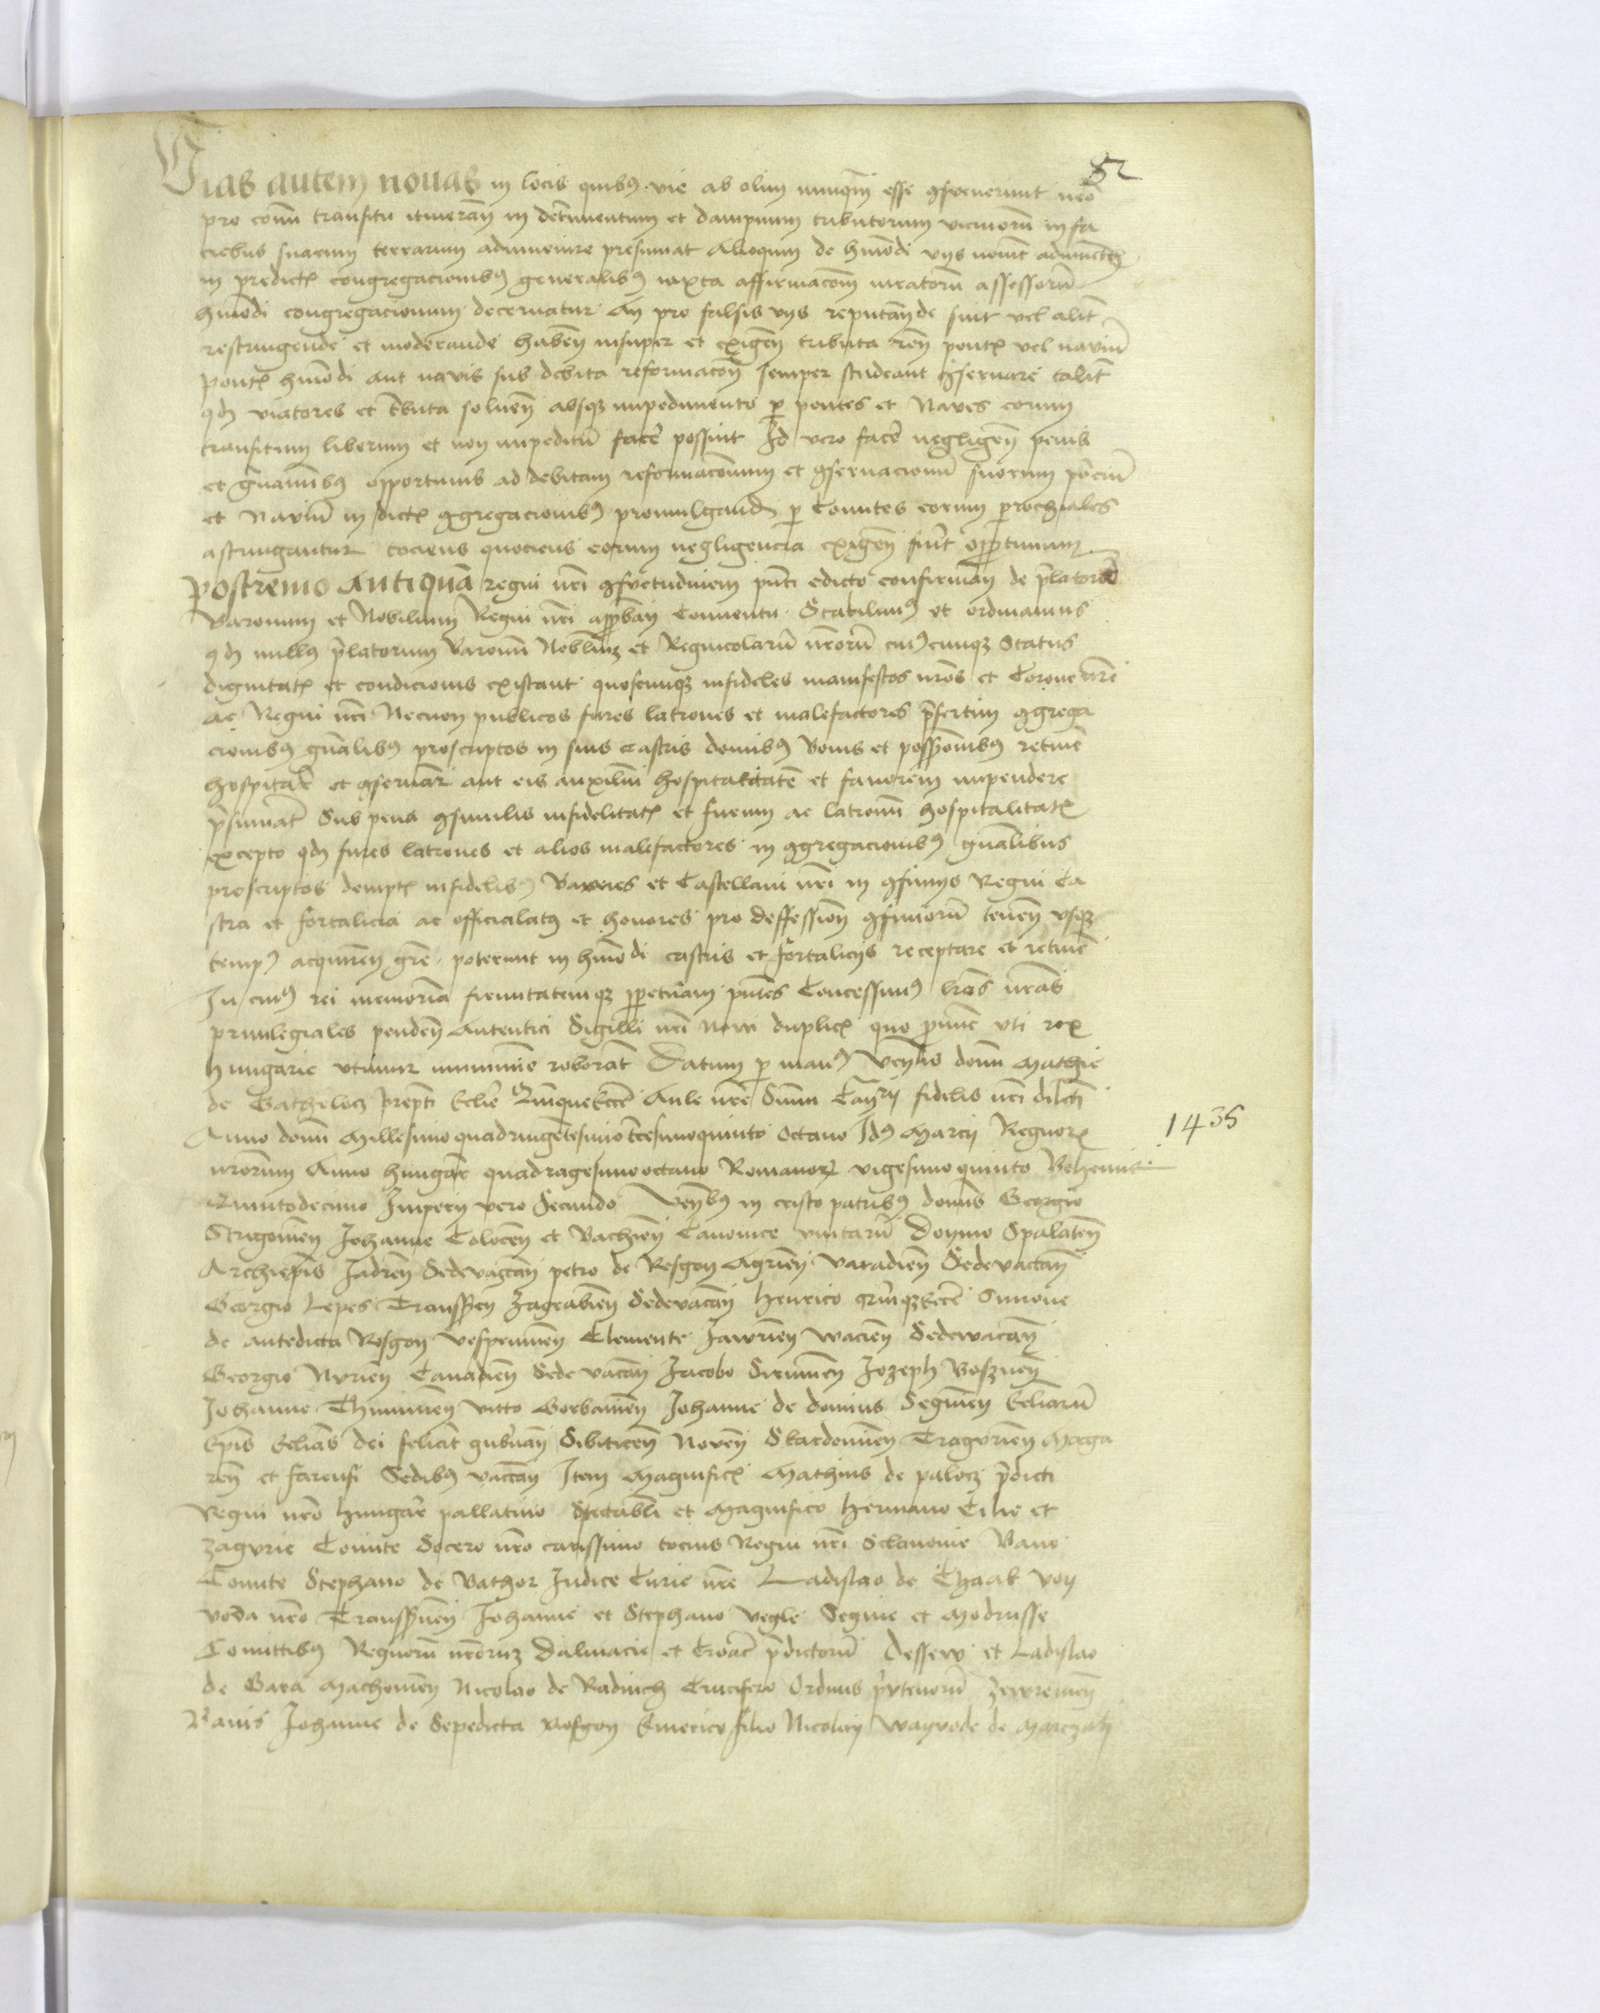 82
Vias autem nouas in locis quibus vie ab olim nunquam esse consueuerunt nemo
pro comuni transitu itinerancium in detrimentum et dampnum tributorum vicinorum in fa
ciebus suarum terrarum adinuenire presumat Alioquin de huiusmodi vijs nouiter adinuentis
in predictis congregacionibus generalibus iuxta affirmacionem iuratorum assessorum
huiusmodi congregacionum decernatur An pro falsis vijs reputande sint vel aliter
restringende et moderande habentes insuper et exigentes tributa racione pontis vel nauium
pontes huiusmodi aut naues sub debita reformacione semper studeant conseruare taliter
quod viatores et tributa soluentes absque impedimento per pontes et Naues eorum
transitum liberum et non impeditum facere possint Id vero facere negligentes penis
et grauaminibus opportunis ad debitam reformacionem et conseruacionem suorum poncium
et Nauium in dictis congregacionibus promulgandis per Comites eorum parochiales
astringantur tociens quociens eorum negligencia exigente fuerit opportunum
Postremo Antiquam regni nostri consuetudinem presenti edicto confirmantes de prelatorum
Baronum et Nobilium Regni nostri approbantium Conuentu Statuimus et ordinamus
quod nullus prelatorum Baronum Nobilium et Regnicolarum nostrorum cuiuscunque Status
dignitatis et condicionis existant quoscunque infideles manifestos nostros et Corone nostre
ac Regni nostri Necnon publicos fures latrones et malefactores presertim congrega
cionibus generalibus proscriptos in suis Castris domibus bonis et possessionibus retinere
hospitare et conseruare aut eis auxilium hospitalitatem et fauorem impendere
presumat Sub pena consimilis infidelitatis et furum ac latronum hospitalitatis
excepto quod fures latrones et alios malefactores in congregacionibus generalibus
proscriptos demptis infidelibus Barones et Castellani nostri in confinijs Regni Ca
stra et fortalicia ac officiolatus et honores pro deffensione confiniorum tenentes usque
tempus acquirende gratie poterunt in huiusmodi castris et fortalicijs receptare et retinere
In cuius rei memoriam firmitatemque perpetuam presentes Concessimus literas nostras
priuilegiales pendentis Autentici Sigilli nostri Noui duplicis quo pronunc vti rex
hungarie vtimur munimine roboratas Datum per manus Venerabilis domini Mathie
de Gathelocz prepositi Ecclesie Quinqueecclesiensis Aule nostre Summi Cancellarij fidelis nostri dilecti
Anno domini Millesimo quadringentesimo tricesimoquinto octauo Idus Marcij Regnorum
nostrorum Anno hungarie quadragesimooctauo Romanorum vigesimoquinto Bohemie
1435
Quintodecimo Imperij vero Secundo Venerabilibus in cristo patribus dominis Georgio
Strigoniensi Johanne Colocensi et Bachiensi Canonice vnitarum Doymo Spalatensi
Archiepiscopis Jadrensi Sedevacante petro de Rosgon Agriensi Varadiensi Sedevacante
Georgio Lepes Transsiluano Zagrabiensi Sedevacante Henrico quinqueecclesiensi Simone
de antedicta Rosgon Vesprimiensi Clemente Jauriensi Waciensi Sedewacante
Georgio Nitriensi Canadiensi Sede vacante Jacobo Sirimiensi Jozeph Boznensi
Johanne Thininiensi Vitto Corbauiensi Johanne de dominis Segniensi Ecclesiarum
Episcopis Ecclesias dei feliciter gubernantibus Sibinicensi Nonensi Skardoniensi Traguriensi Maga
rensi et farensi Sedibus vacantibus Item Magnificis Mathius de palocz predicti
Regni nostri hungarie pallatino Spectabili et Magnifico Hermanno Cilie et
Zagorie Comite Socero nostro carissimo tocius Regni nostri Sclauonie Bano
Comite Stephano de Bathor Iudice Curie nostre Ladislao de Chaak Voy
voda nostro Transsiluano Johanne et Stephano Vegle Segnie et Modrusse
Comittibus Regnorum nostrorum Dalmacie et Croacie predictorum Dessew et Ladislao
de Gara Machouiensi Nicolao de Radwich Crucifero Ordinis prutenorum Zewreniensi
Banis Johanne de Sepedicta Rosgon Emerico filio Nicolai Wayvode de Marczali